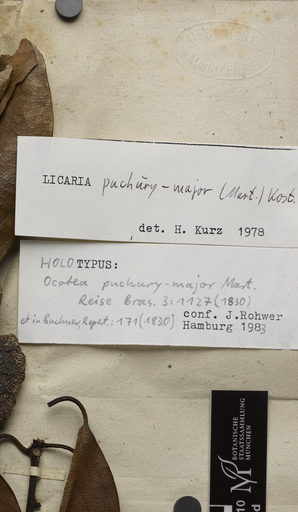 LICARIA puchury-major (Mart.) Kost.
det. H. Kurz 1978
HOLOTYPUS:
Ocotea puchury-major Mart.
Reise Bras. 3:1127 (1830)
et in Buchner, Repert.: 171 (1830)
conf. J.Rohwer
Hamburg 1983
BOTANISCHE
STAATSSAMMLUNG
MÜNCHEN
M
10